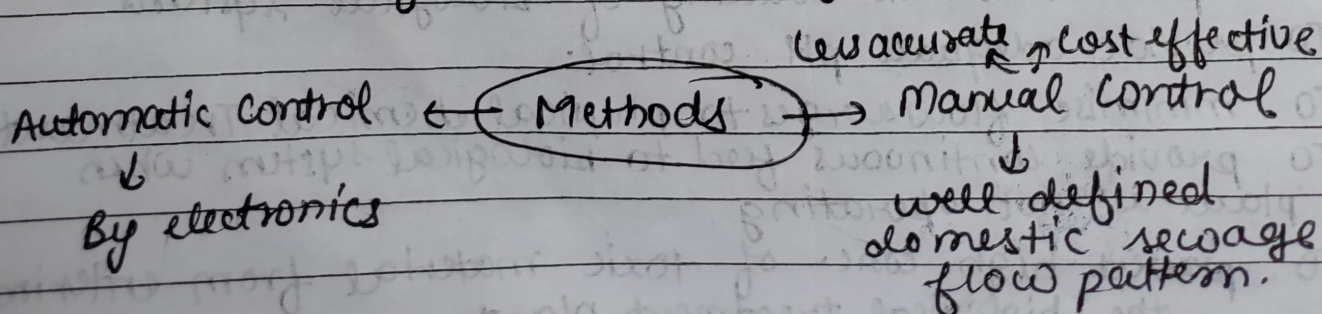 Less accurate ↖ ↗ Cost effective
Automatic Control ← Methods → Manual Control
↓ ↓
By electronics well defined
domestic sewage
flow pattern.